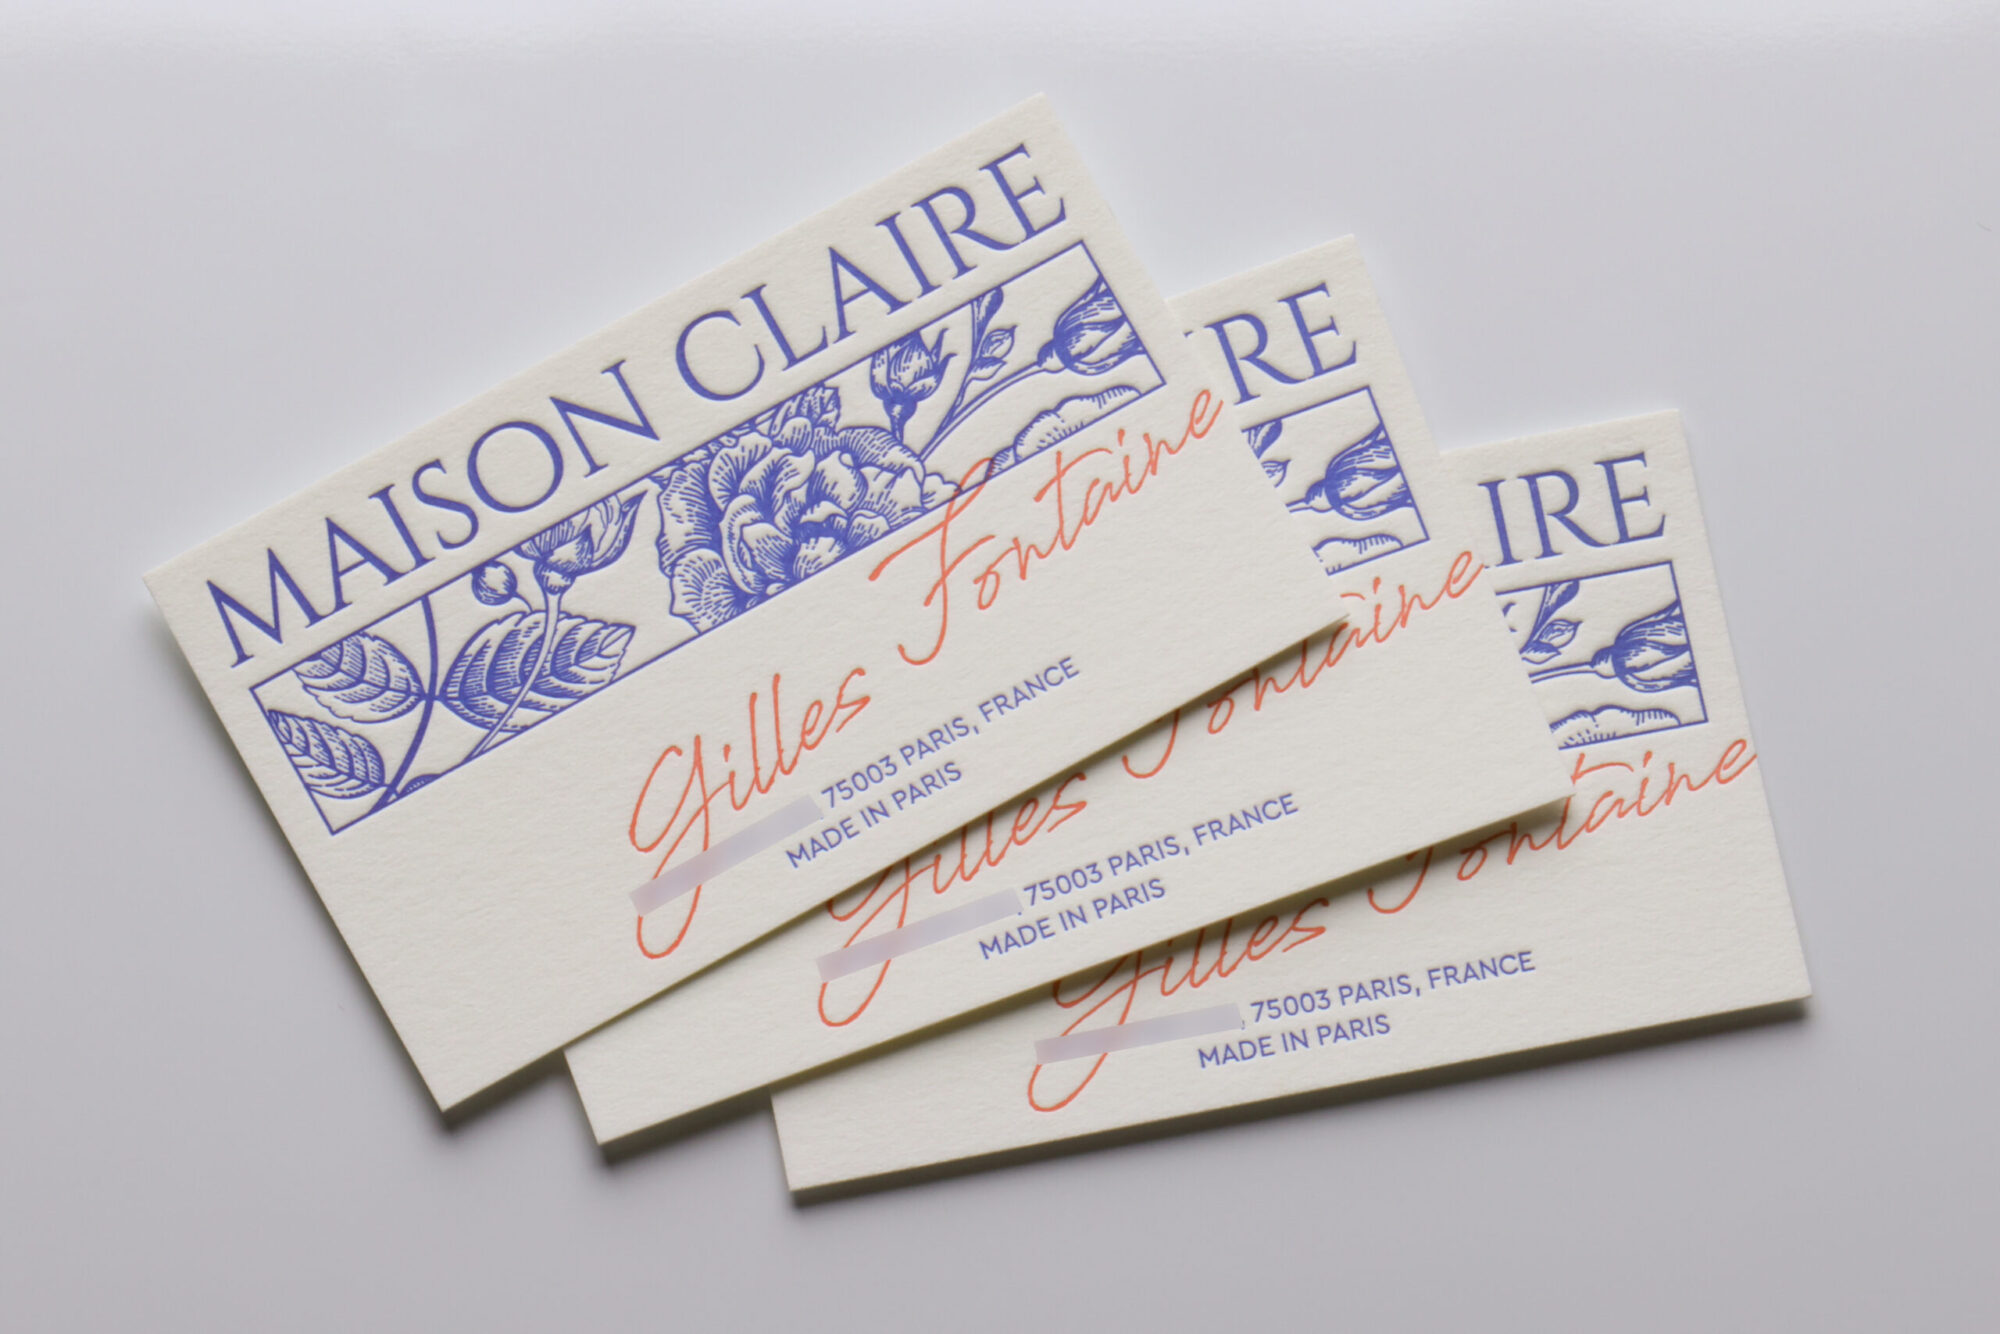 MAISON CLAIRE
Gilles Fontaine
75003 PARIS, FRANCE
MADE IN PARIS
IRE
Gilles Fontaine
, 75003 PARIS, FRANCE
MADE IN PARIS
IRE
Gilles Fontaine
, 75003 PARIS, FRANCE
MADE IN PARIS